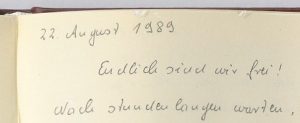 22. August 1989
Endlich sind wir frei!
Nach stundenlangen warten,